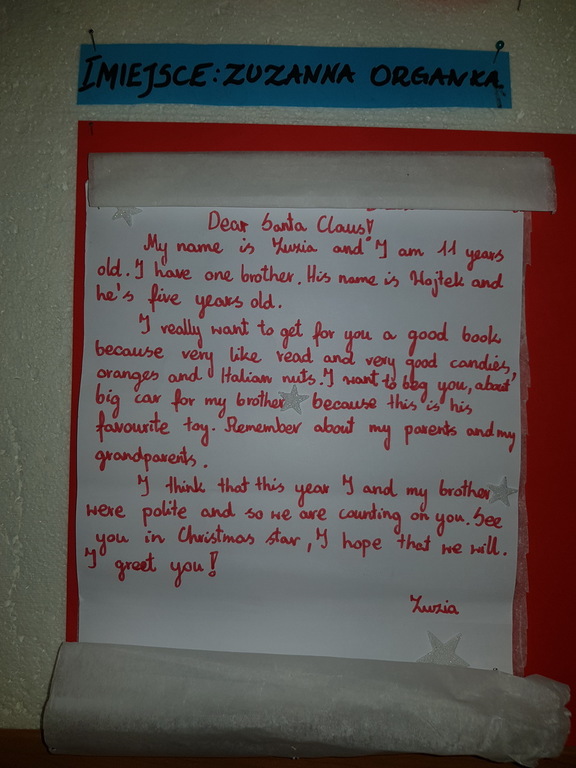 I MIEJSCE: ZUZANNA ORGANKA
Dear Santa Claus!
My name is Zuzia and I am 11 years
old. I have one brother. His name is Wojtek and
he's five years old.
I really want to get for you a good book
because very like read and very good candies,
oranges and Italian nuts. I want to beg you, about
big car for my brother because this is his
favourite toy. Remember about my parents and my
grandparents.
I think that this year I and my brother
were polite and so we are counting on you. See
you in Christmas star, I hope that we will.
I greet you!
Zuzia